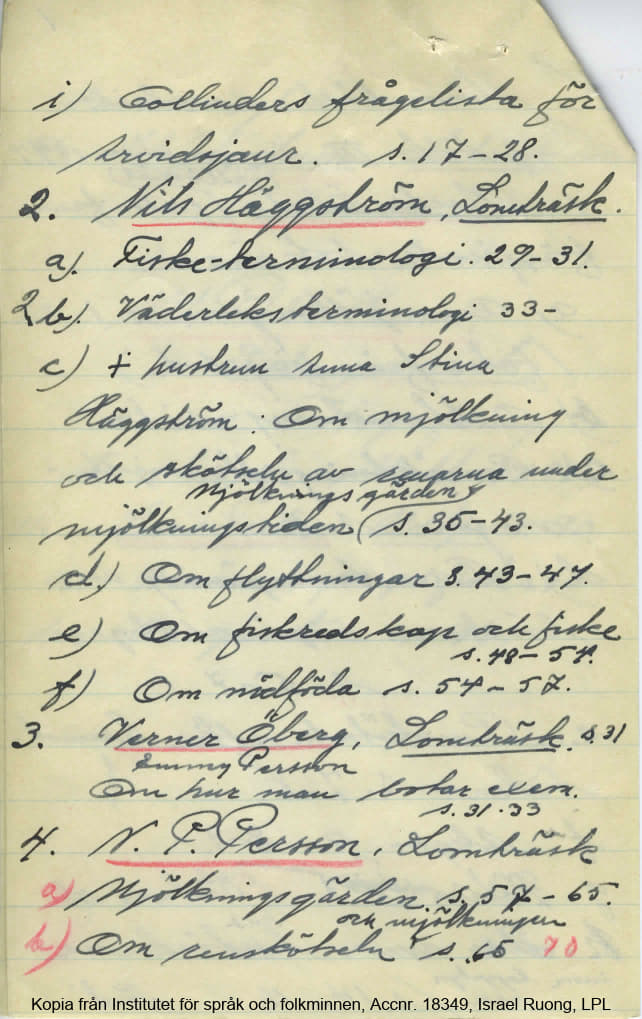 i) Collinders frågelista för
Arvidsjaur. s. 17-28.
2. Nils Häggström, Lomträsk.
a). Fiske-terminologi. 29-31.
2 b). Väderleksterminologi 33-
c) + hustrun Anna Stina
Häggström: Om mjölkning
och skötseln av renarna under
Mjölkningsgärden
mjölkningstiden (s. 35-43.
d.) Om flyttningar s. 43-47.
e) Om fiskredskap och fiske
s. 48-54.
f) Om nödföda s. 54-57.
3. Verner Öberg, Lomträsk, s. 31
Emmy Persson
Om hur man botar exem.
s. 31-33
4. N. P. Persson, Lomträsk
a) Mjölkningsgärden s. 57-65.
och mjölkningen
b) Om renskötseln s. 65 70
Kopia från Institutet för språk och folkminnen, Accnr. 18349, Israel Ruong, LPL